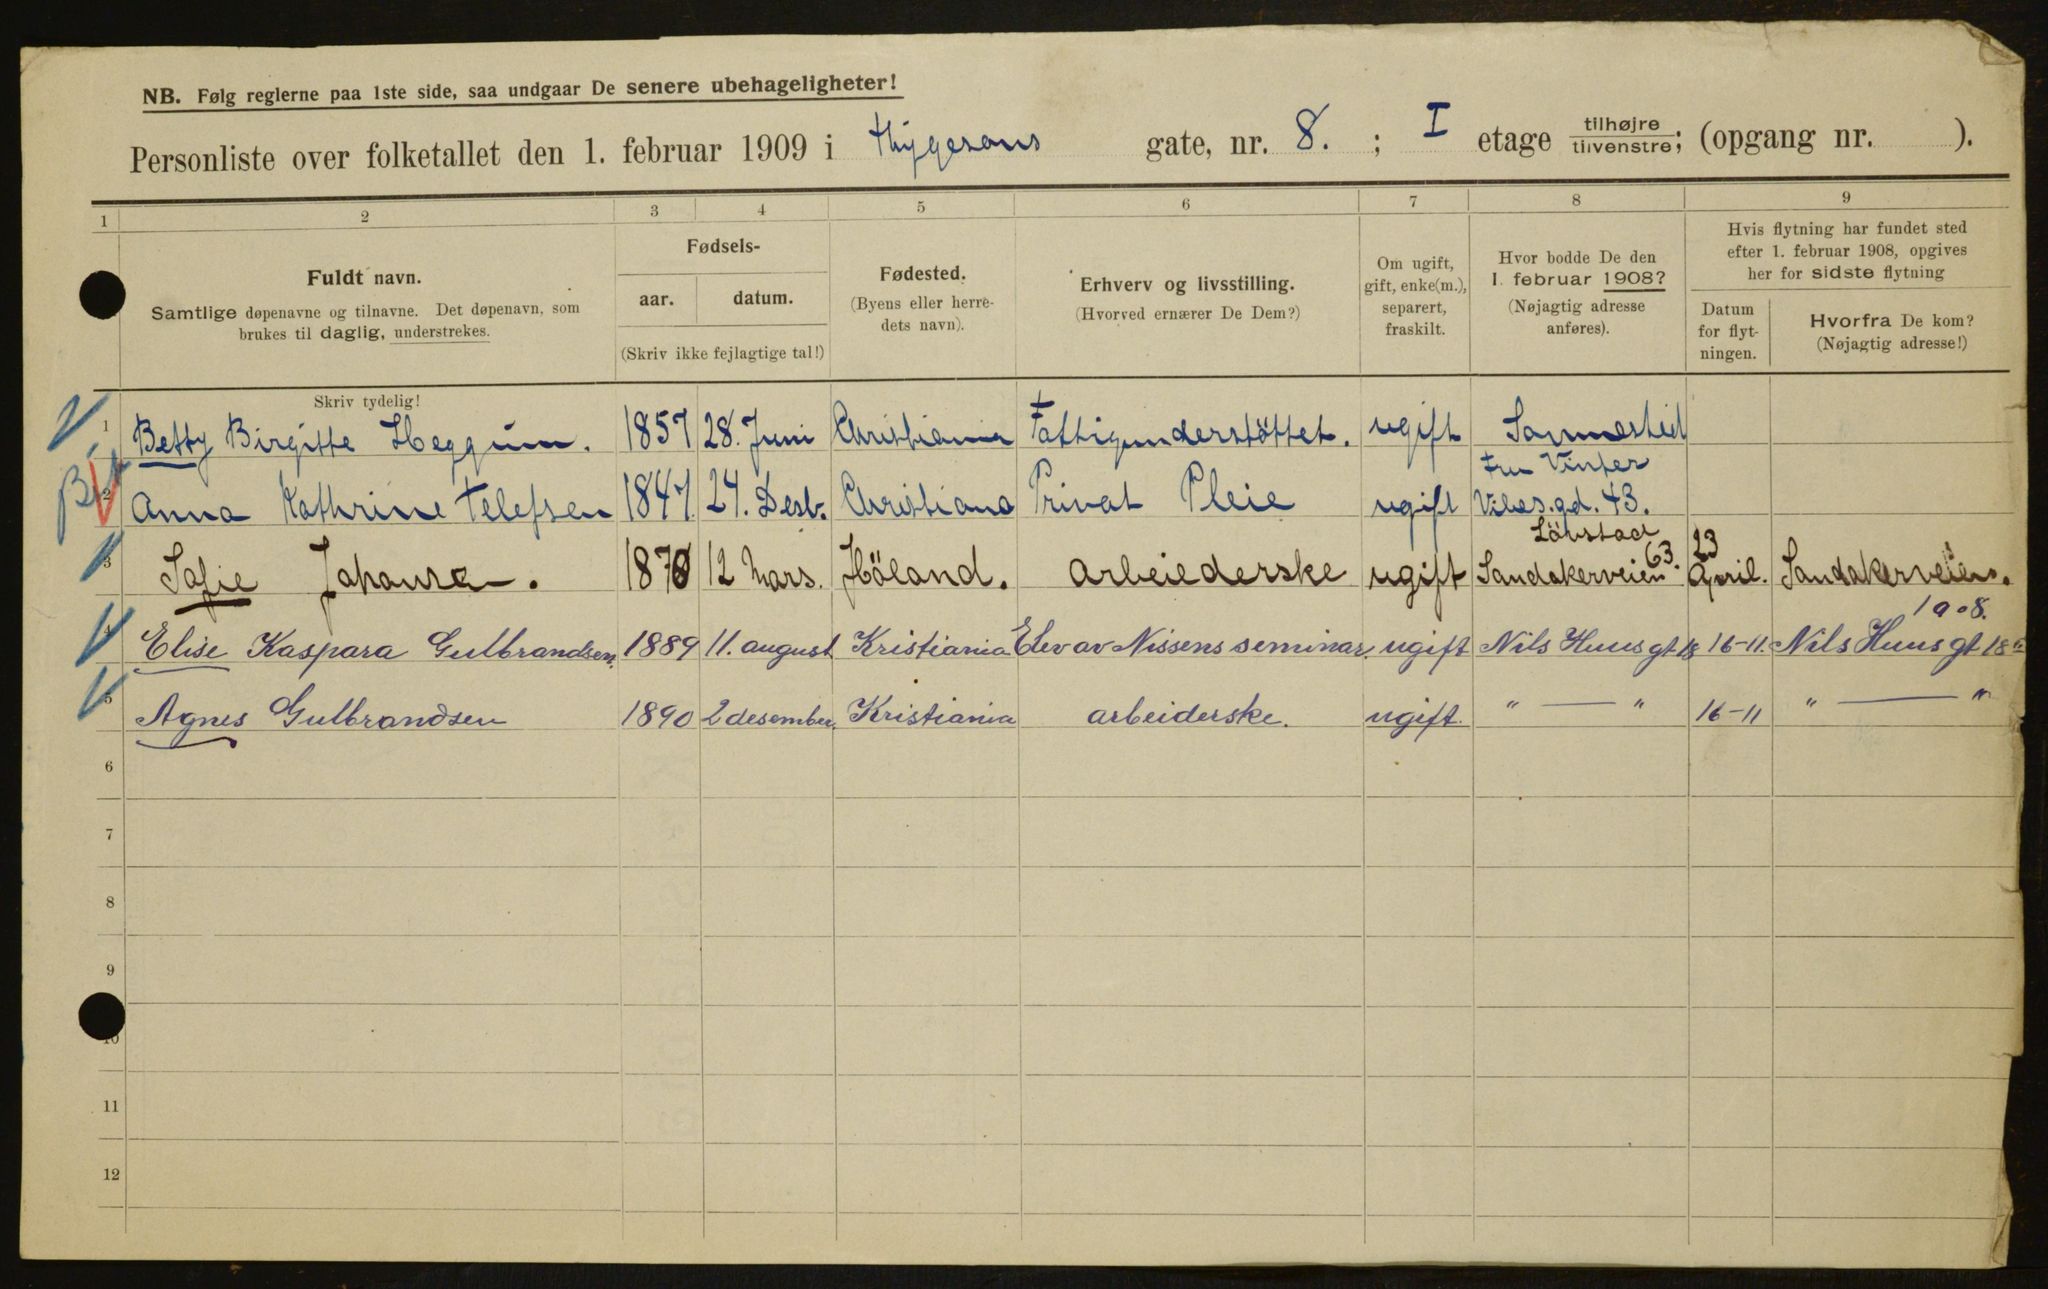 NB. Følg reglerne paa 1ste side, saa undgaar De senere ubehageligheter!
Personliste over folketallet den 1. februar 1909 i Thygesons gate, nr. 8. ; I etage tilhøjre / tilvenstre; (opgang nr. ).
1 2 3 4 5 6 7 8 9
Fuldt navn.
Samtlige døpenavne og tilnavne. Det døpenavn, som
brukes til daglig, understrekes.
Skriv tydelig!
Fødsels-
aar. datum.
(Skriv ikke fejlagtige tal!)
Fødested.
(Byens eller herre-
dets navn).
Erhverv og livsstilling.
(Hvorved ernærer De Dem?)
Om ugift,
gift, enke(m.),
separert,
fraskilt.
Hvor bodde De den
1. februar 1908?
(Nøjagtig adresse
anføres).
Hvis flytning har fundet sted
efter 1. februar 1908, opgives
her for sidste flytning
Datum
for flyt-
ningen.
Hvorfra De kom?
(Nøjagtig adresse!)
1 Betty Birgitte Heggum. 1857 28. Juni Christiania Fattigunderstöttet. ugift Sammested
Fru Vinter
2 Anna Kathrine Telefsen 1847. 24. Desb. Christiana Privat Pleie ugift Vibes.gd. 43.
Lövstad 23
3 Sofie Johansen. 1870 12 Mars. Höland. arbeiederske ugift Sandakerveien 63. April. Sandakerveien.
1908.
4 Elise Kaspara Gulbrandsen. 1889 11. august Kristiania Elev av Nissens seminar. ugift Nils Huus gt 18 16-11. Nils Huus gt 18
5 Agnes Gulbrandsen 1890 2 desember. Kristiania arbeiderske. ugift. " — " 16-11 " — "
6
7
8
9
10
11
12